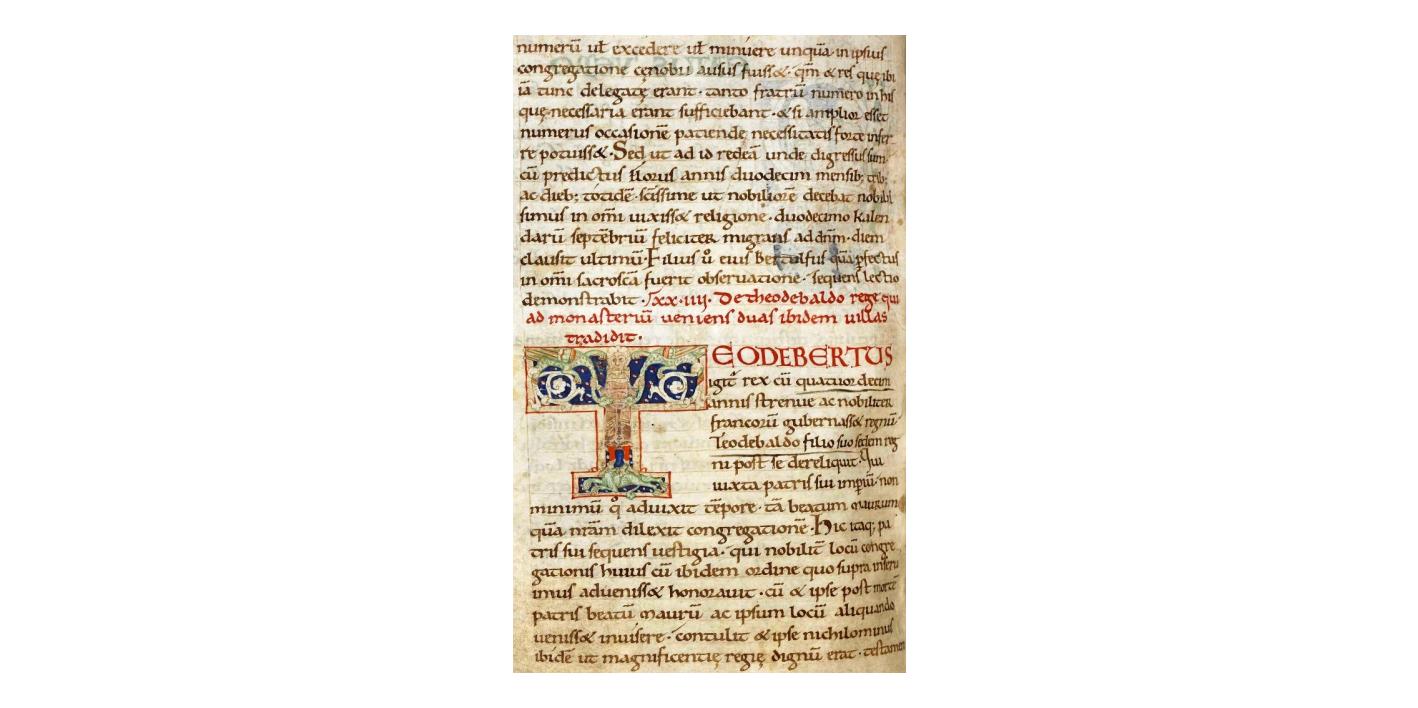 numerū uł excedere uł minuere unquā in ipsius
congregatione cęnobii ausus fuiss&· qm̄ & res quę ibi
iā tunc delegatę erant· tanto fratrū numero in his
quę necessaria erant sufficiebant· & si amplior esset
numerus occasionē patiendę necessitatis forte infer
re potuiss&· Sed ut ad id redeā unde digressus sum·
cū predictus florus annis duodecim mensib; trib;
ac dieb; totidē sc̄issime ut nobiliorē decebat nobilis
simus in om̄i uixiss& religione· duodecimo kalen
darū septēbriū feliciter migrans ad dn̄m· diem
clausit ultimū· Filius ů eius bertulfus quā pfectus
in om̄i sacrosc̄a fuerit obseruatione· sequens lectio
demonstrabit· xx·iiii· De theodebaldo rege qui
ad monasteriū ueniens duas ibidem uillas
tradidit·
TEODEBERTUS
igit̄ rex cū quatuor decim
annis strenue ac nobiliter
francorū gubernass& regnū·
Teodebaldo filio suo sedem reg
ni post se dereliquit· Qui
iuxta patris sui imp̄iū· non
minimū q̊ aduixit tēpore· tā beatum maurum
quā nr̄am dilexit congregationē· Hic itaq; pa
tris sui sequens uestigia· qui nobilit̄ locū congre
gationis huius cū ibidem ordine quo supra inseru
imus adueniss& honorauit· cū & ipse post mortē
patris beatū maurū ac ipsum locū aliquando
ueniss& inuisere· contulit & ipse nichilominus
ibidē ut magnificentię regię dignū erat· testamen